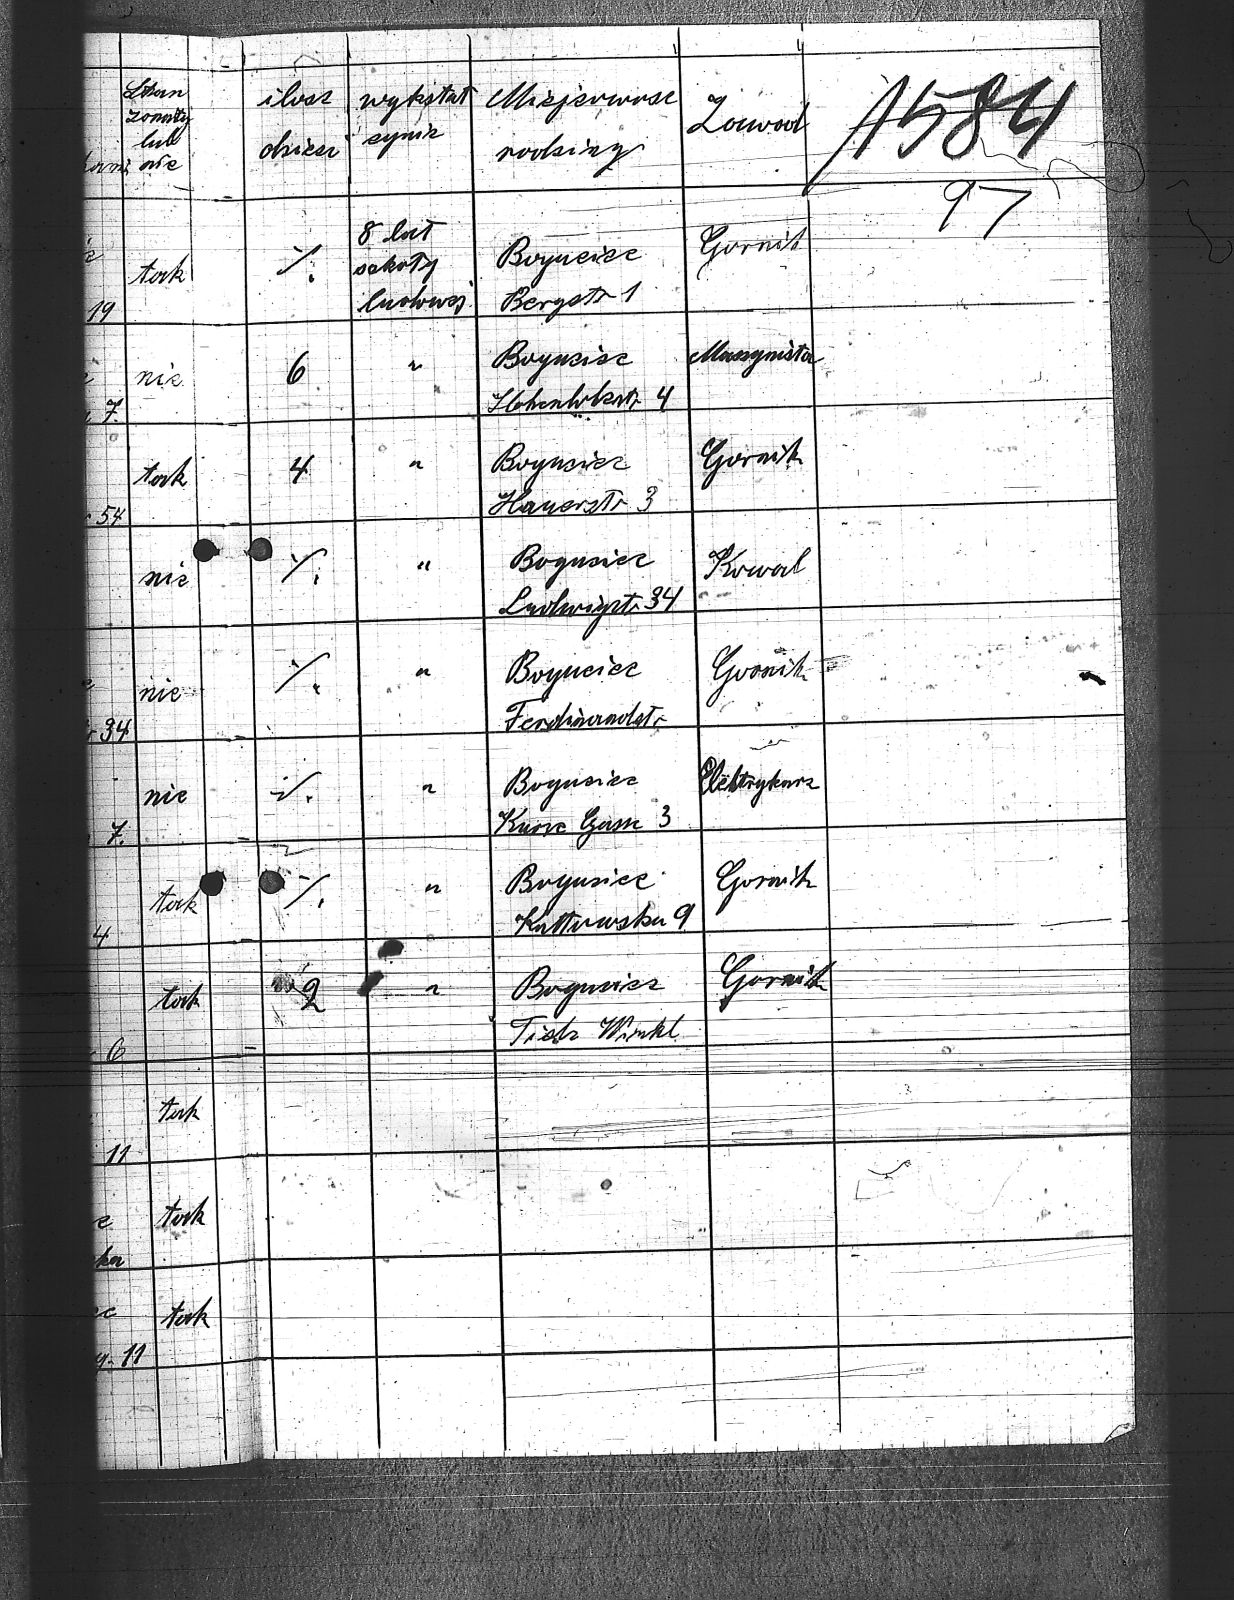 Stan
żonaty
lub
nie
ilosc
dzieci
wykształ
cynie
Miejscowosc
rodziny
Zawod
1584
97
19
tak
·/.
8 lat
szkoły
ludowej
Bogucice
Bergstr 1
Gornik
7.
nie
6
"
Bogucice
Hohenlohestr 4
Maszynista
54
tak
4
"
Bogucice
Hauerstr 3
Gornik
nie
·/.
"
Bogucice
Ludwigstr 34
Kowal
34
nie
·/.
"
Bogucice
Ferdinandstr
Gornik
7.
nie
·/.
"
Bogucice
Kurze Gasse 3
Elektrykarz
4
tak
·/.
"
Bogucice
Kattowska 9
Gornik
6
tak
2
"
Bogucice
Winkl.
Gornik
11
tak
tak
tak
11